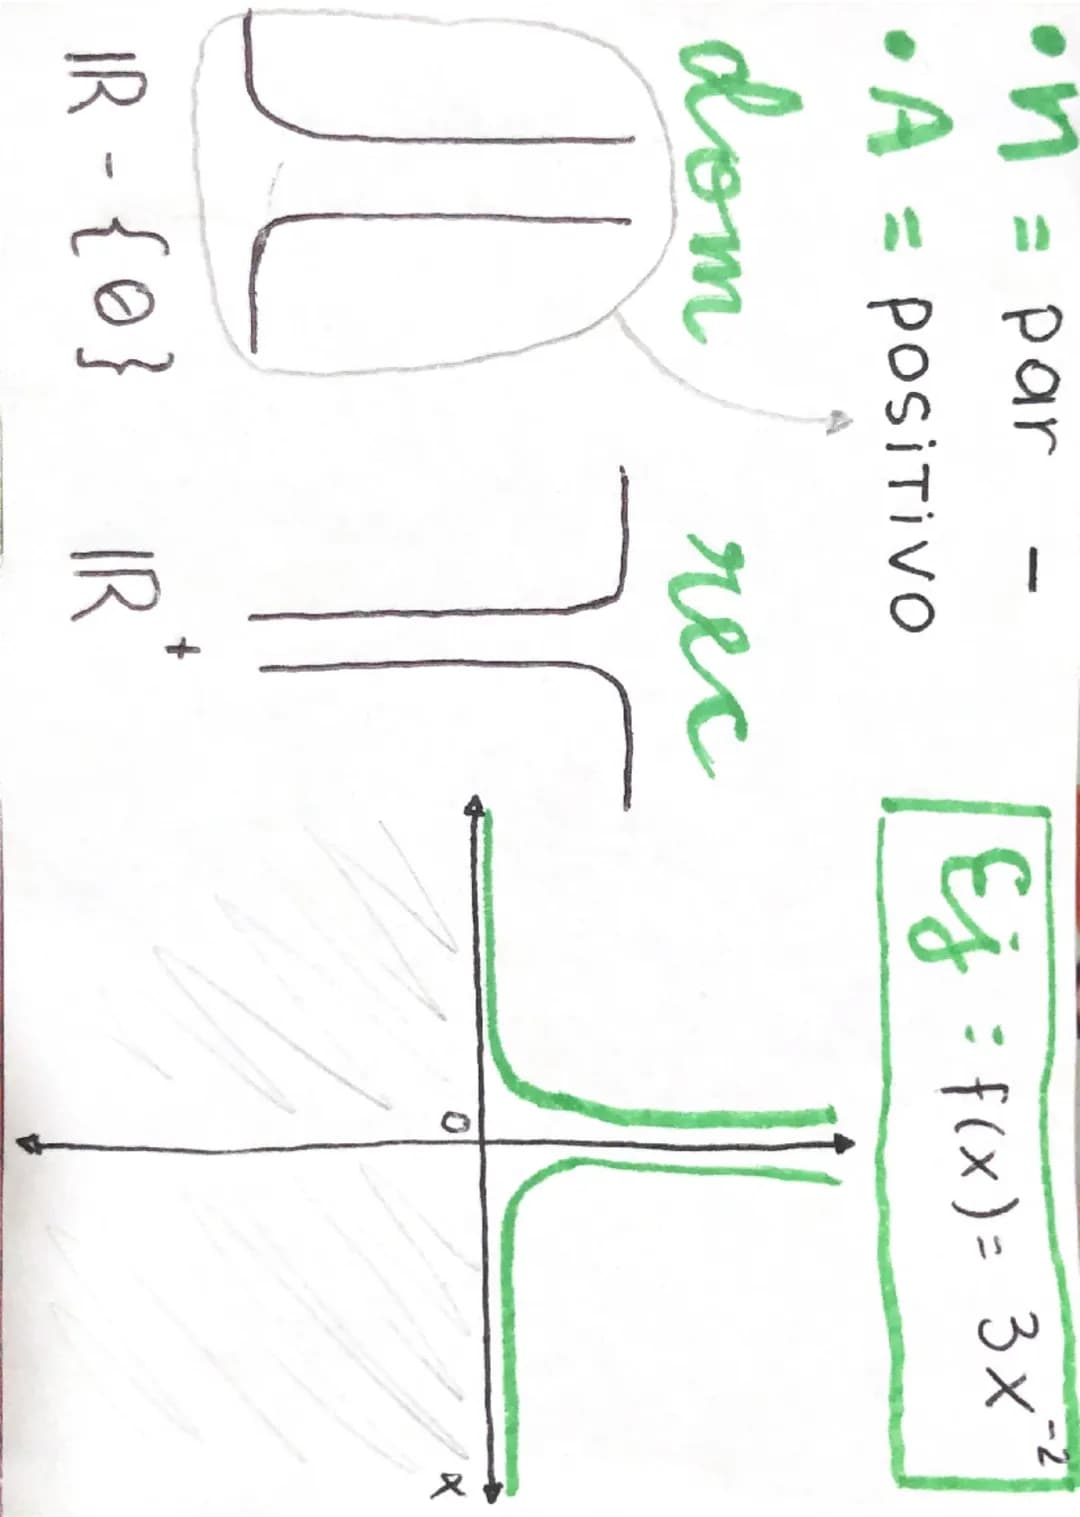 • n = par -
• A = positivo
dom
rec
IR - {0}
IR +
Ej : f(x) = 3x⁻²
0
x